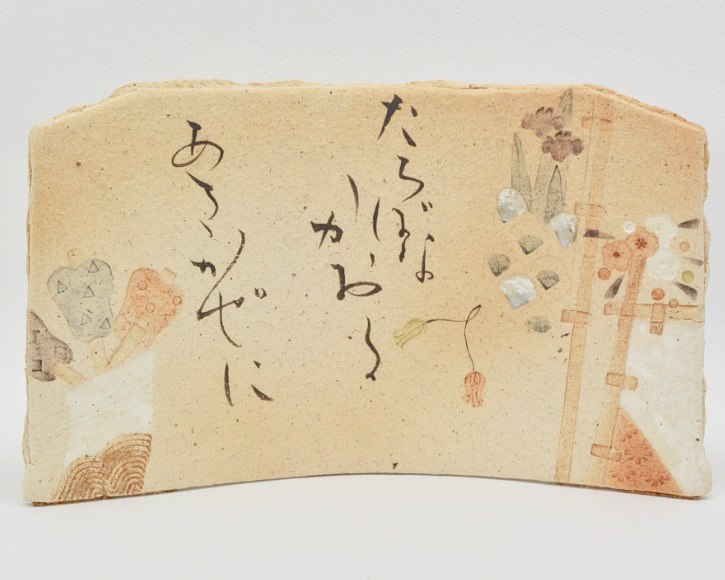 たちばな
かおる
あさかぜに